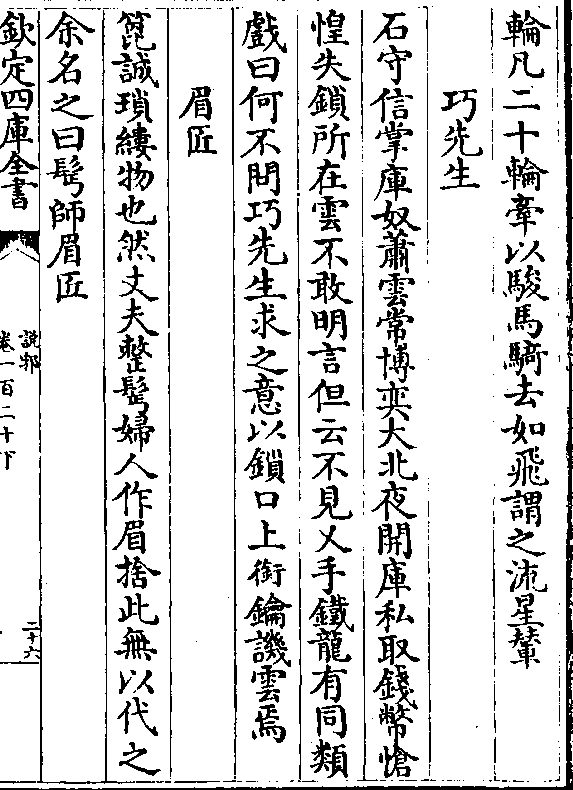 輪凡二十輪牽以駿馬騎去如飛謂之流星輦
巧先生
石守信掌庫奴蕭雲常博奕大北夜開庫私取錢幣愴
惶失鎖所在雲不敢明言但云不見乂手鐵龍有同類
戲曰何不問巧先生求之意以鎖口上銜鑰譏雲焉
眉匠
篦誠瑣縷物也然丈夫整髩婦人作眉捨此無以代之
余名之曰髩師眉匠
欽定四庫全書
說郛
卷一百二十下
二十六